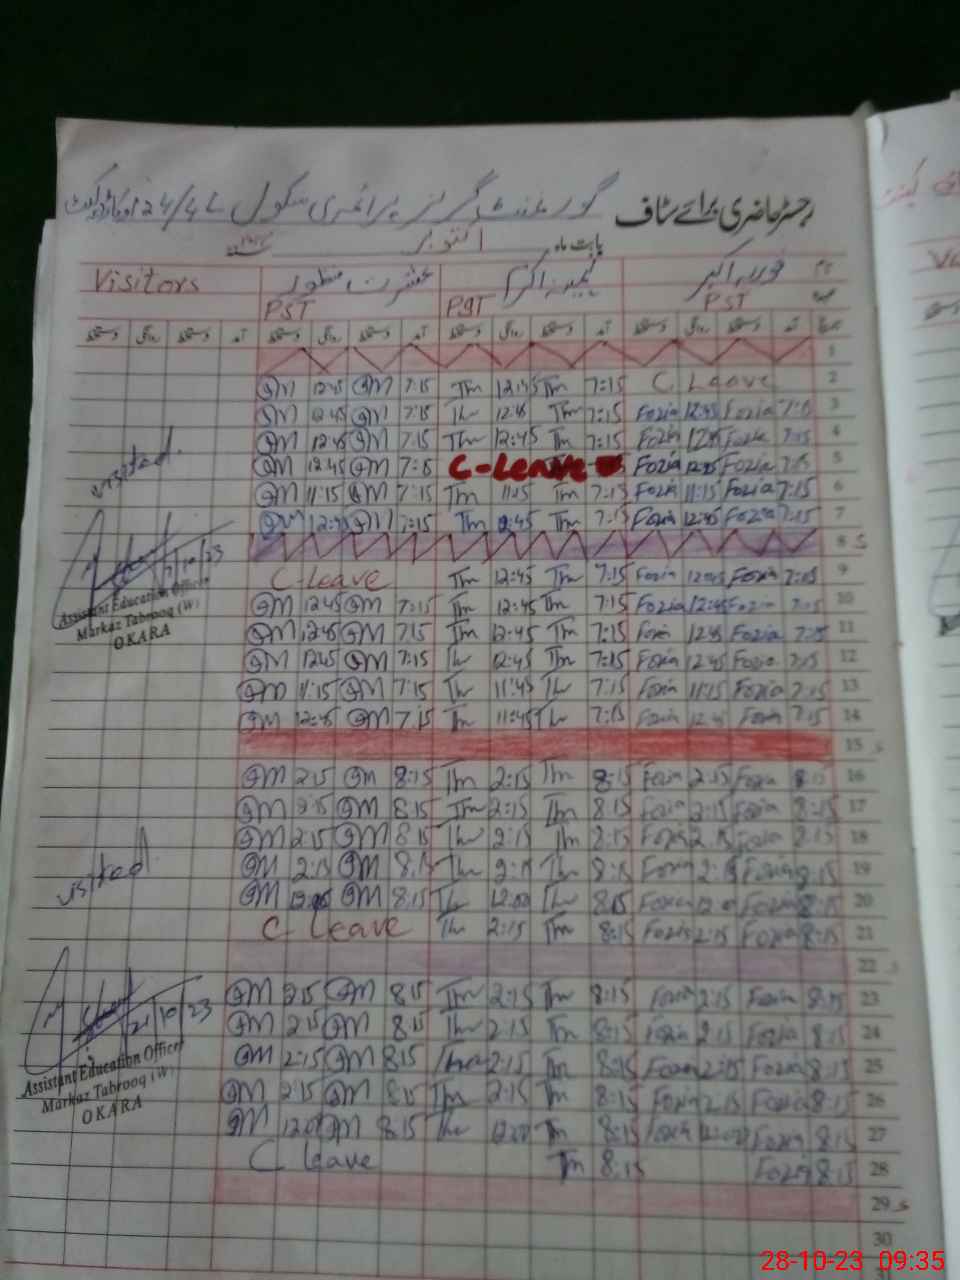 رجسٹر حاضری برائے سٹاف گورنمنٹ گرلز پرائمری سکول
بابت ماہ اکتوبر
Visitors عشرت منظور اکبر
PST PST PST
1
QM 12:45 QM 7:15 Tm 12:45 Tm 7:15 C Leave 2
QM 12:45 QM 7:15 Tm 12:45 Tm 7:15 Fozia 12:45 Fozia 7:15 3
QM 12:45 QM 7:15 Tm 12:45 Tm 7:15 Fozia 12:45 Fozia 7:15 4
visited QM 12:45 QM 7:15 C-Leave Fozia 12:45 Fozia 7:15 5
QM 11:15 QM 7:15 Tm 11:15 Tm 7:15 Fozia 11:15 Fozia 7:15 6
QM 12:45 QM 7:15 Tm 12:45 Tm 7:15 Fozia 12:45 Fozia 7:15 7
8 S
/10/23
C-Leave Tm 12:45 Tm 7:15 Fozia 12:45 Fozia 7:15 9
Assistant Education Officer
Markaz Tabrooq (W)
OKARA
QM 12:45 QM 7:15 Tm 12:45 Tm 7:15 Fozia 12:45 Fozia 7:15 10
QM 12:45 QM 7:15 Tm 12:45 Tm 7:15 Fozia 12:45 Fozia 7:15 11
QM 12:45 QM 7:15 Tm 12:45 Tm 7:15 Fozia 12:45 Fozia 7:15 12
QM 11:15 QM 7:15 Tm 11:45 Tm 7:15 Fozia 11:15 Fozia 7:15 13
QM 12:45 QM 7:15 Tm 11:45 Tm 7:15 Fozia 12:45 Fozia 7:15 14
15 S
QM 2:15 QM 8:15 Tm 2:15 Tm 8:15 Fozia 2:15 Fozia 8:15 16
QM 2:15 QM 8:15 Tm 2:15 Tm 8:15 Fozia 2:15 Fozia 8:15 17
QM 2:15 QM 8:15 Tm 2:15 Tm 8:15 Fozia 2:15 Fozia 8:15 18
visited QM 2:15 QM 8:15 Tm 2:15 Tm 8:15 Fozia 2:15 Fozia 8:15 19
QM 12:00 QM 8:15 Tm 12:00 Tm 8:15 Fozia 12:00 Fozia 8:15 20
C Leave Tm 2:15 Tm 8:15 Fozia 2:15 Fozia 8:15 21
22 S
QM 2:15 QM 8:15 Tm 2:15 Tm 8:15 Fozia 2:15 Fozia 8:15 23
21/10/23
QM 2:15 QM 8:15 Tm 2:15 Tm 8:15 Fozia 2:15 Fozia 8:15 24
Assistant Education Officer
Markaz Tabrooq (W)
OKARA
QM 2:15 QM 8:15 Tm 2:15 Tm 8:15 Fozia 2:15 Fozia 8:15 25
QM 2:15 QM 8:15 Tm 2:15 Tm 8:15 Fozia 2:15 Fozia 8:15 26
QM 12:00 QM 8:15 Tm 12:00 Tm 8:15 Fozia 12:00 Fozia 8:15 27
C leave Tm 8:15 Fozia 8:15 28
29 S
30
28-10-23 09:35